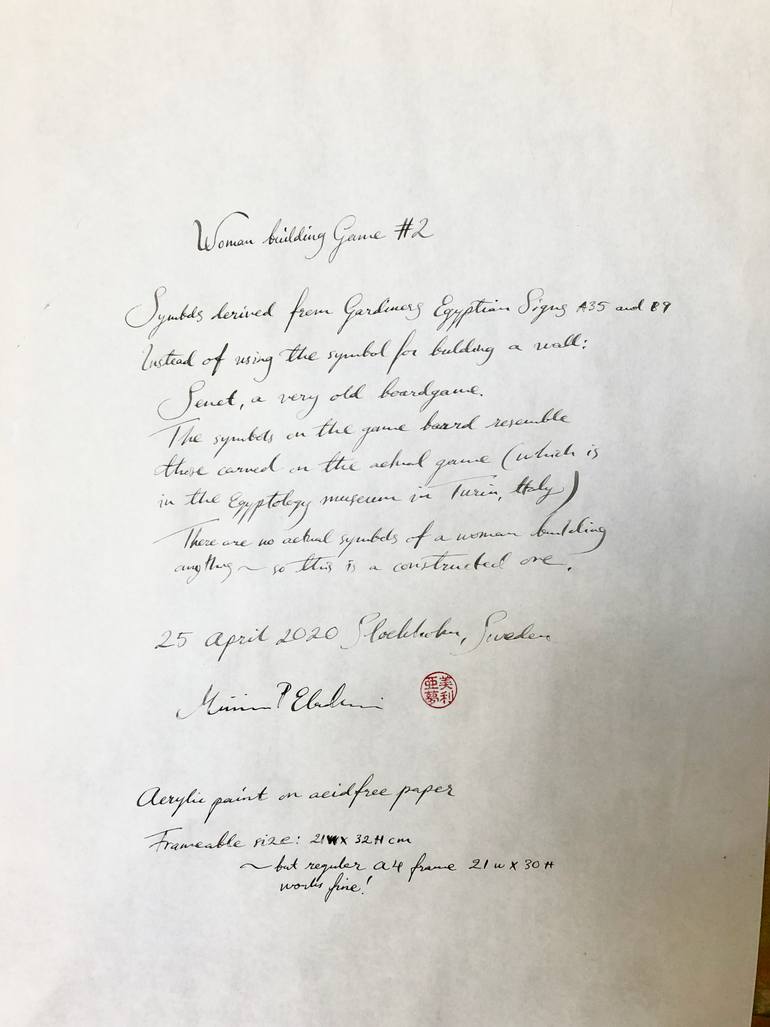 Woman building Game #2
Symbols derived from Gardiners Egyptian Signs A35 and B9
Instead of using the symbol for building a wall:
Senet, a very old boardgame.
The symbols on the game board resemble
those carved on the actual game (which is
in the Egyptology museum in Turin, Italy)
There are no actual symbols of a woman building
anything ~ so this is a constructed one.
25 April 2020 Stockholm, Sweden
亜美
夢利
Acrylic paint on acidfree paper
Frameable size: 21W x 32H cm
~ but reguler A4 frame 21 W x 30 H
works fine!